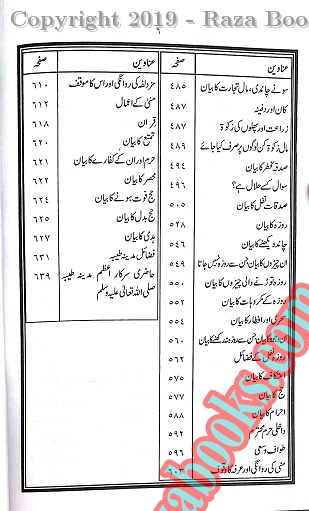 Copyright 2019 - Raza Boo
٦
عناوین صفحہ
سونے چاندی، مال تجارت کا بیان ٤٨٥
کان اور دفینہ ٤٨٧
زراعت اور پھلوں کی زکوٰۃ ٤٨٧
مال زکوٰۃ کن لوگوں پر صرف کیا جائے ٤٨٩
صدقۂ فطر کا بیان ٤٩٤
سوال کسے حلال ہے؟ ٤٩٦
صدقات نفل کا بیان ٥٠٥
روزہ کا بیان ٥٢٨
چاند دیکھنے کا بیان ٥٤٦
ان چیزوں کا بیان جن سے روزہ نہیں جاتا ٥٤٩
روزہ توڑنے والی چیزوں کا بیان ٥٥٠
روزہ کے مکروہات کا بیان ٥٥٢
سحری اور افطار کا بیان ٥٥٤
ان وجوہ کا بیان جن سے روزہ نہ رکھنے کا بیان ٥٦٠
روزہ نفل کے فضائل ٥٦٢
اعتکاف کا بیان ٥٧٥
حج کا بیان ٥٧٧
احرام کا بیان ٥٨٨
داخلی حرم محترم ٥٩٢
طواف وسعی ٥٩٦
منٰی کی روانگی اور عرفہ کا وقوف ٦٠٣
عناوین صفحہ
مزدلفہ کی روانگی اور اس کا موقف ٦١٠
منٰی کے اعمال ٦١٢
قران ٦١٨
تمتع کا بیان ٦٢٠
حرم اور ان کے کفارے کا بیان ٦٢١
محصر کا بیان ٦٢٢
حج فوت ہونے کا بیان ٦٢٤
حج بدل کا بیان ٦٢٥
ہدی کا بیان ٦٢٧
فضائل مدینہ طیبہ ٦٣١
حاضری سرکار اعظم مدینہ طیبہ ٦٣٩
صلی اللہ تعالیٰ علیہ وسلم
zabooks.com